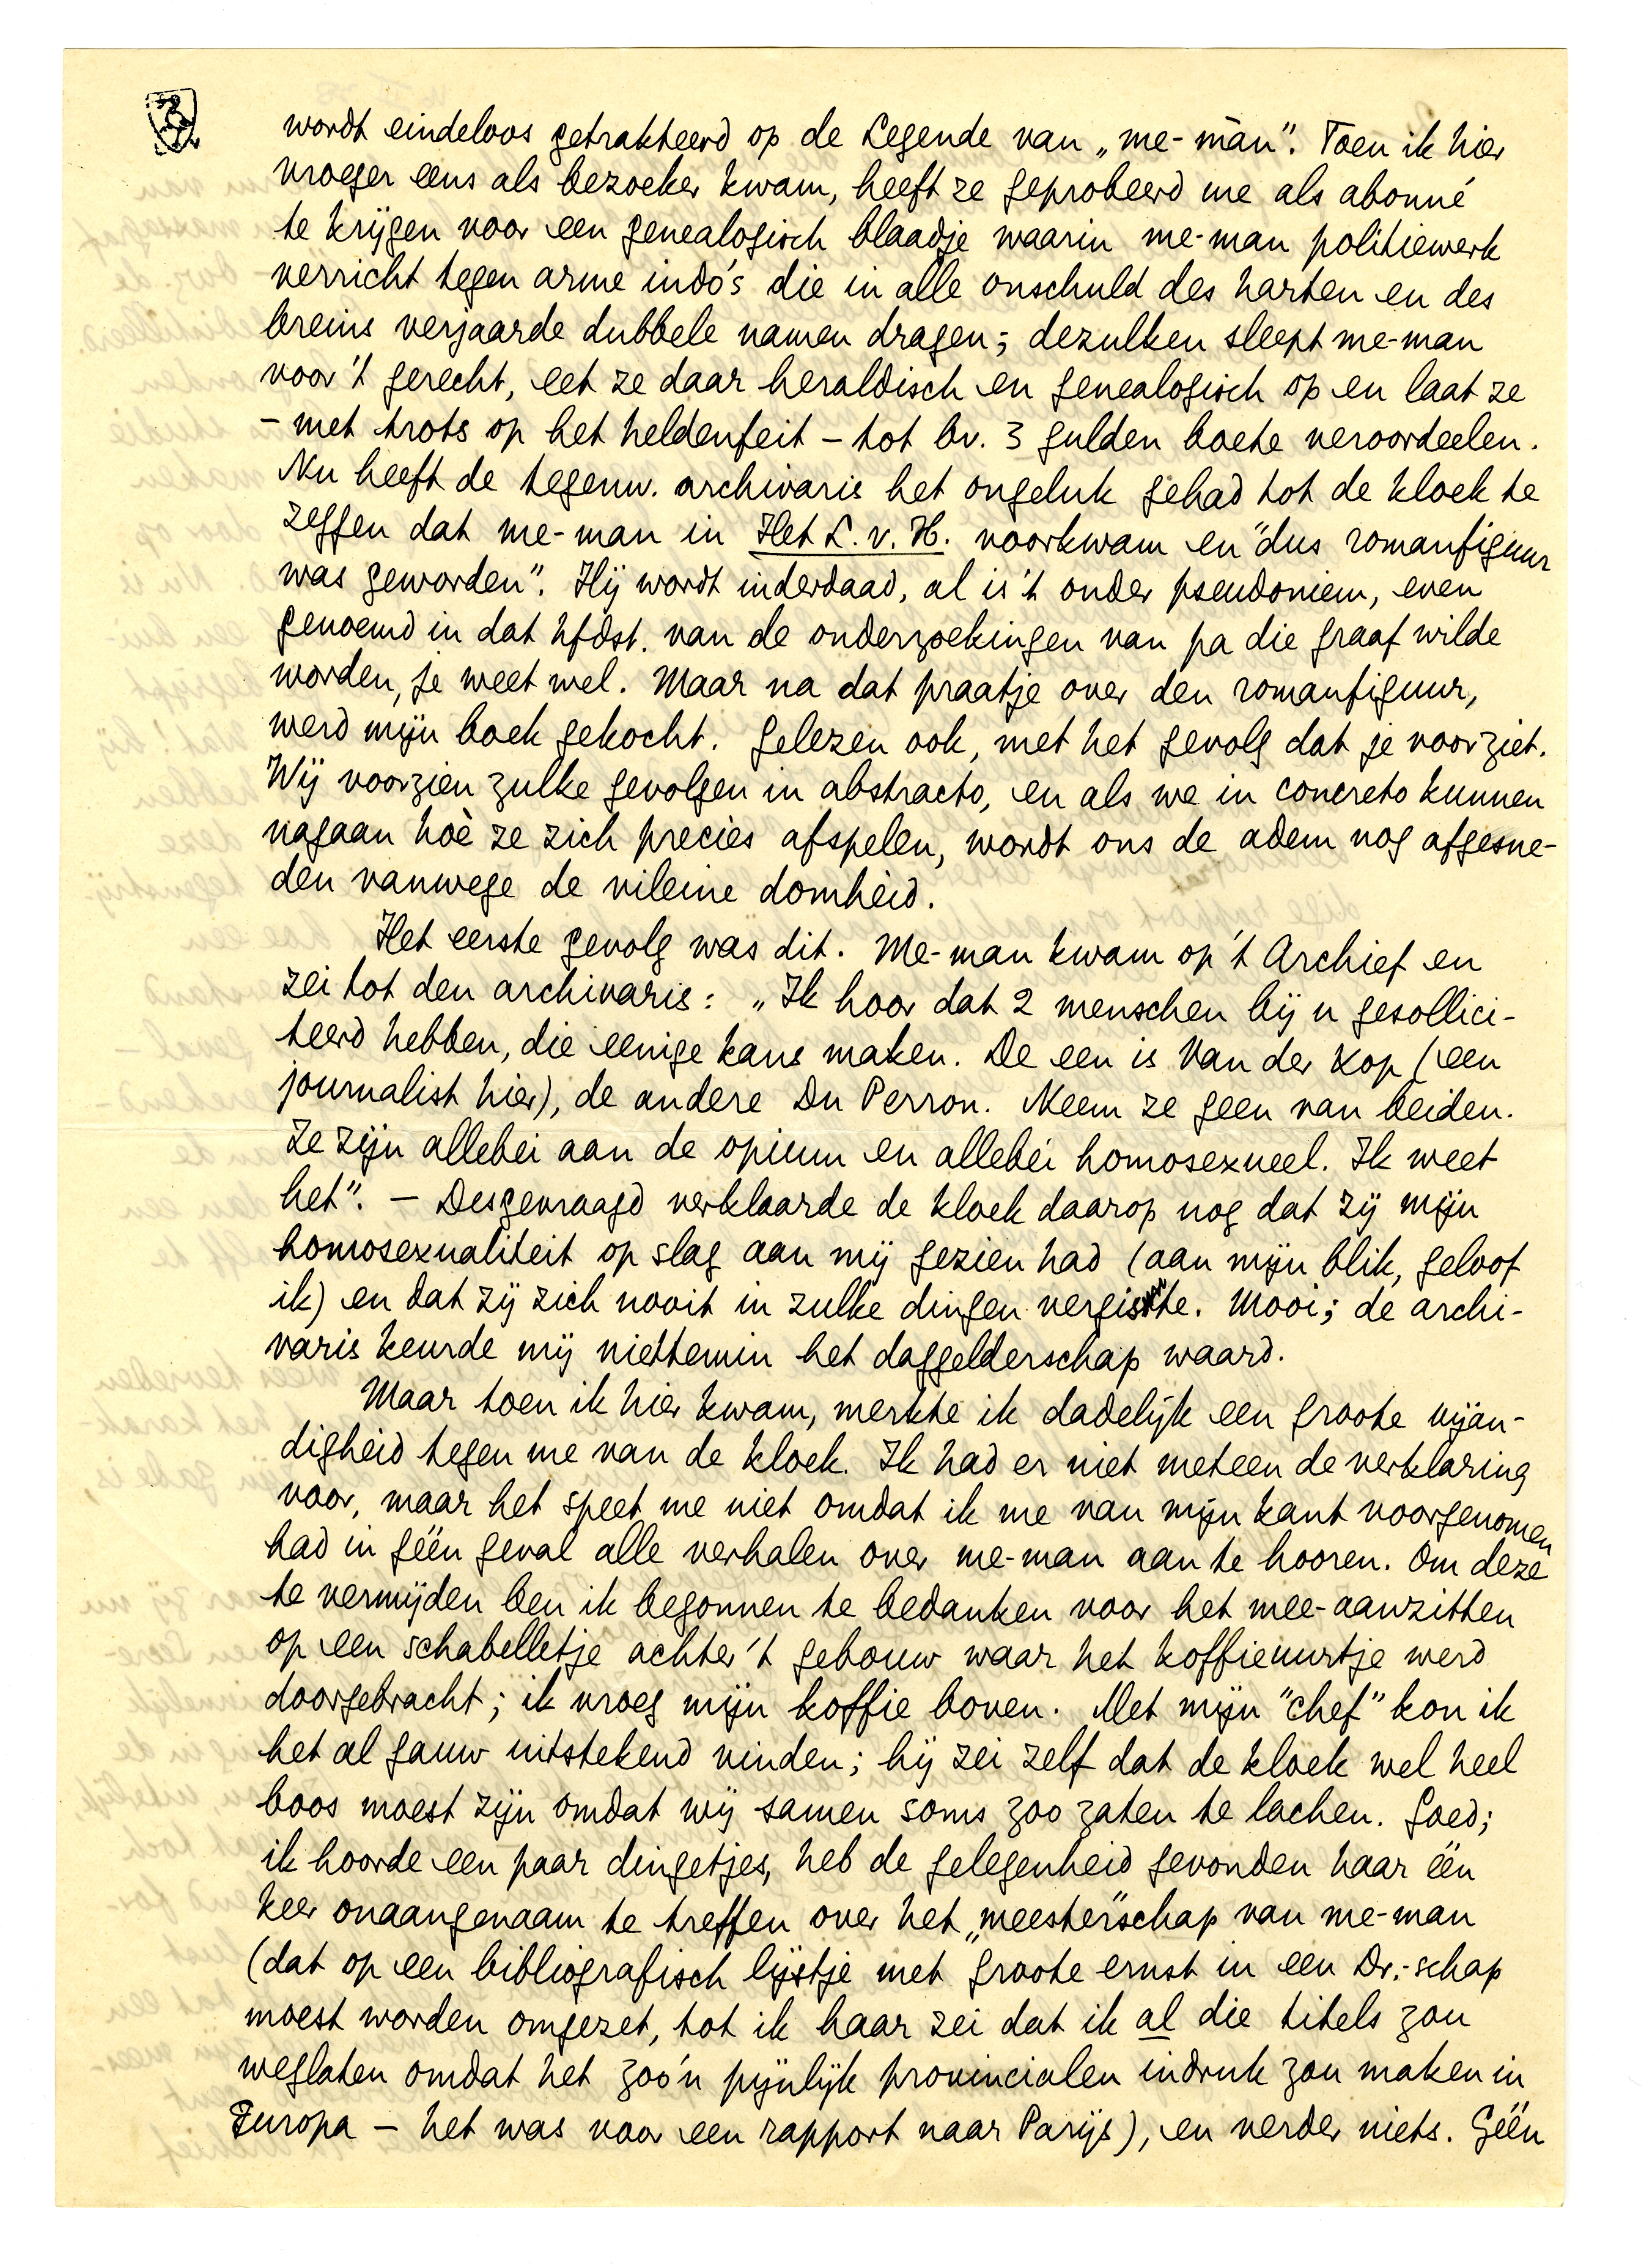 wordt eindeloos getrakteerd op de Legende van „me-mān”. Toen ik hier
vroeger eens als bezoeker kwam, heeft ze geprobeerd me als abonné
te krijgen voor een genealogisch blaadje waarin me-man politiewerk
verricht tegen arme indo's die in alle onschuld des harten en des
breins verjaarde dubbele namen dragen; dezulken sleept me-man
voor 't gerecht, eet ze daar heraldisch en genealogisch op en laat ze
– met trots op het heldenfeit – tot bv. 3 gulden boete veroordeelen.
Nu heeft de tegenw. archivaris het ongeluk gehad tot de kloek te
zeggen dat me-man in Het L. v. H. voorkwam en "dus romanfiguur
was geworden". Hij wordt inderdaad, al is 't onder pseudoniem, even
genoemd in dat hfdst. van de onderzoekingen van pa die graaf wilde
worden, je weet wel. Maar na dat praatje over den romanfiguur,
werd mijn boek gekocht. Gelezen ook, met het gevolg dat je voorziet.
Wij voorzien zulke gevolgen in abstracto, en als we in concreto kunnen
nagaan hoè ze zich precies afspelen, wordt ons de adem nog afgesne-
den vanwege de vileine domheid.
Het eerste gevolg was dit. Me-man kwam op 't Archief en
zei tot den archivaris: „Ik hoor dat 2 menschen bij u gesollici-
teerd hebben, die eenige kans maken. De een is Van der Kop (een
journalist hier), de andere Du Perron. Neem ze geen van beiden.
Ze zijn allebei aan de opium en allebei homosexueel. Ik weet
het”. – Desgevraagd verklaarde de kloek daarop nog dat zij mijn
homosexualiteit op slag aan mij gezien had (aan mijn blik, geloof
ik) en dat zij zich nooit in zulke dingen vergiste. Mooi; de archi-
varis keurde mij niettemin het daggelderschap waard.
Maar toen ik hier kwam, merkte ik dadelijk een groote vijan-
digheid tegen me van de kloek. Ik had er niet meteen de verklaring
voor, maar het speet me niet omdat ik me van mijn kant voorgenomen
had in géén geval alle verhalen over me-man aan te hooren. Om deze
te vermijden ben ik begonnen te bedanken voor het mee-aanzitten
op een schabelletje achter 't gebouw waar het koffieuurtje werd
doorgebracht; ik vroeg mijn koffie boven. Met mijn "chef" kon ik
het al gauw uitstekend vinden; hij zei zelf dat de kloek wel heel
boos moest zijn omdat wij samen soms zoo zaten te lachen. Goed;
ik hoorde een paar dingetjes, heb de gelegenheid gevonden haar één
keer onaangenaam te treffen over het „meester"schap van me-man
(dat op een bibliografisch lijstje met groote ernst in een Dr.-schap
moest worden omgezet, tot ik haar zei dat ik al die titels zou
weglaten omdat het zoo'n pijnlijk provincialen indruk zou maken in
Europa – het was voor een rapport naar Parijs), en verder niets. Géén